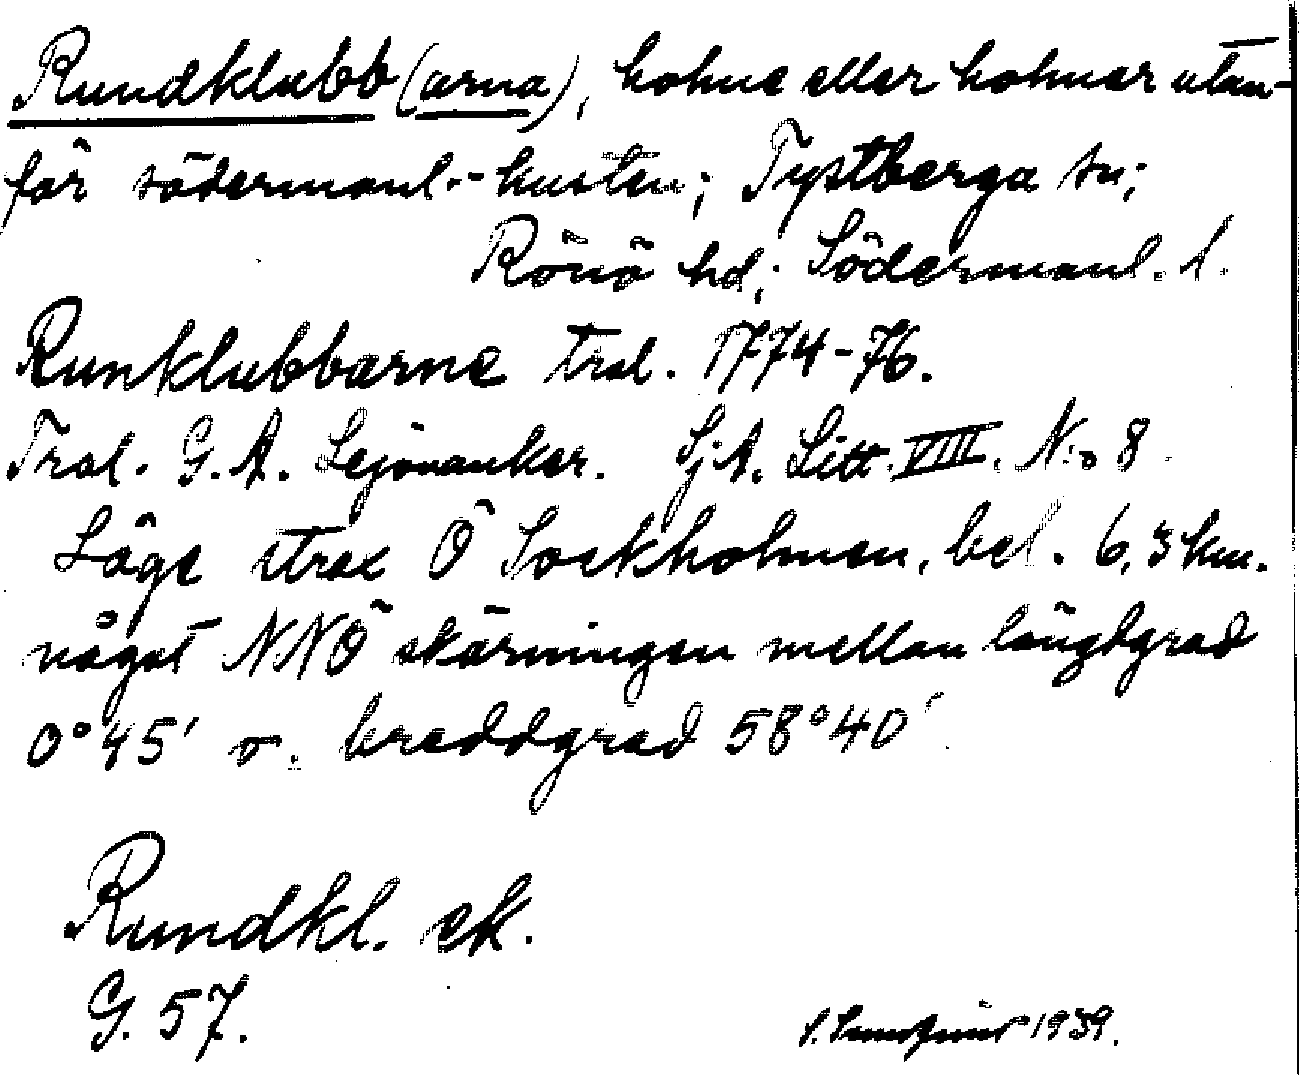 Rundklubb (arna), holme eller holmar utan-
för södermanl.-kusten; Tystberga sn;
Rönö hd; Södermanl. l.
Runklubbarne trol. 1774-76.
Trol. G. A. Lejonanker. Sj.A. Litt. VIII. N:o 8
Läge strax Ö Sockholmen, bel. 6,3 km.
något NNÖ skärningen mellan längdgrad
0°45' o. breddgrad 58°40'
Rundkl. ek.
G. 57.
1939.